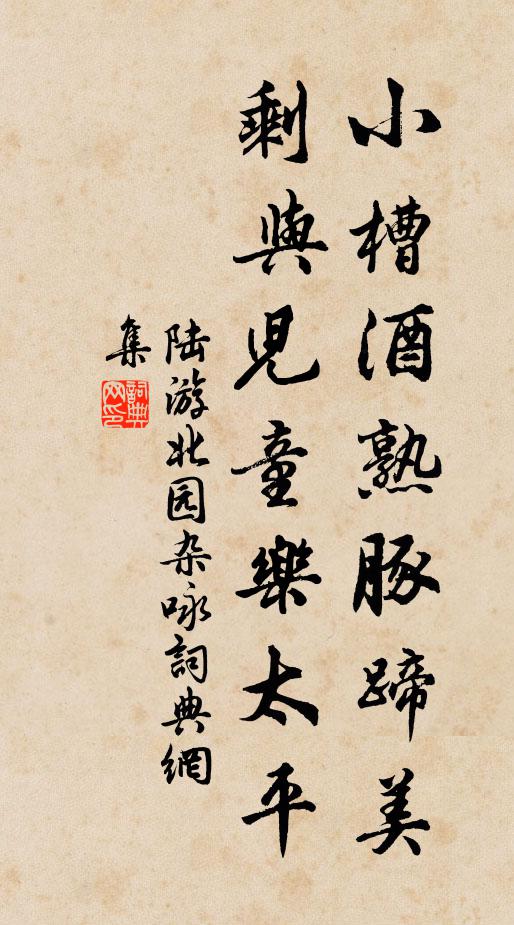 小槽酒熟豚蹄美
剩與兒童樂太平
陆游北园杂咏詞典網
集
詞典网印